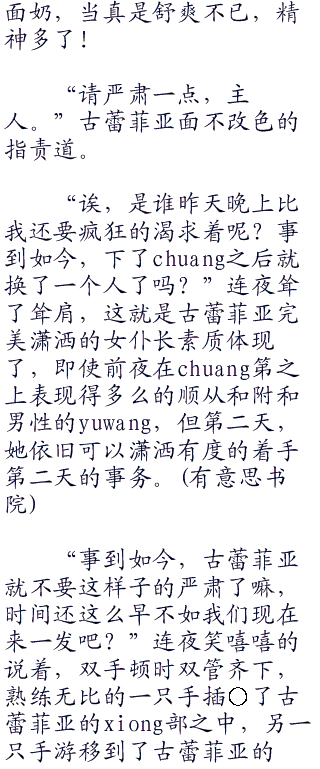 面奶，当真是舒爽不已，精
神多了！
“请严肃一点，主
人。”古蕾菲亚面不改色的
指责道。
“诶，是谁昨天晚上比
我还要疯狂的渴求着呢？事
到如今，下了chuang之后就
换了一个人了吗？”连夜耸
了耸肩，这就是古蕾菲亚完
美潇洒的女仆长素质体现
了，即使前夜在chuang第之
上表现得多么的顺从和附和
男性的yuwang，但第二天，
她依旧可以潇洒有度的着手
第二天的事务。(有意思书
院)
“事到如今，古蕾菲亚
就不要这样子的严肃了嘛，
时间还这么早不如我们现在
来一发吧？”连夜笑嘻嘻的
说着，双手顿时双管齐下，
熟练无比的一只手插○了古
蕾菲亚的xiong部之中，另一
只手游移到了古蕾菲亚的